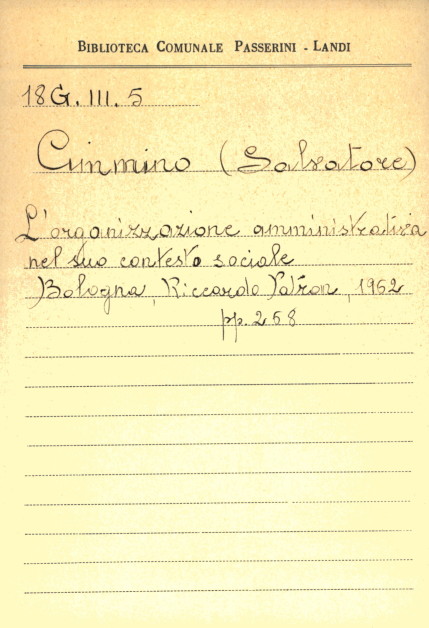 BIBLIOTECA COMUNALE PASSERINI - LANDI
18G. III. 5
Cimmino (Salvatore)
L'organizzazione amministrativa
nel suo contesto sociale
Bologna, Riccardo Patron, 1962
pp. 258